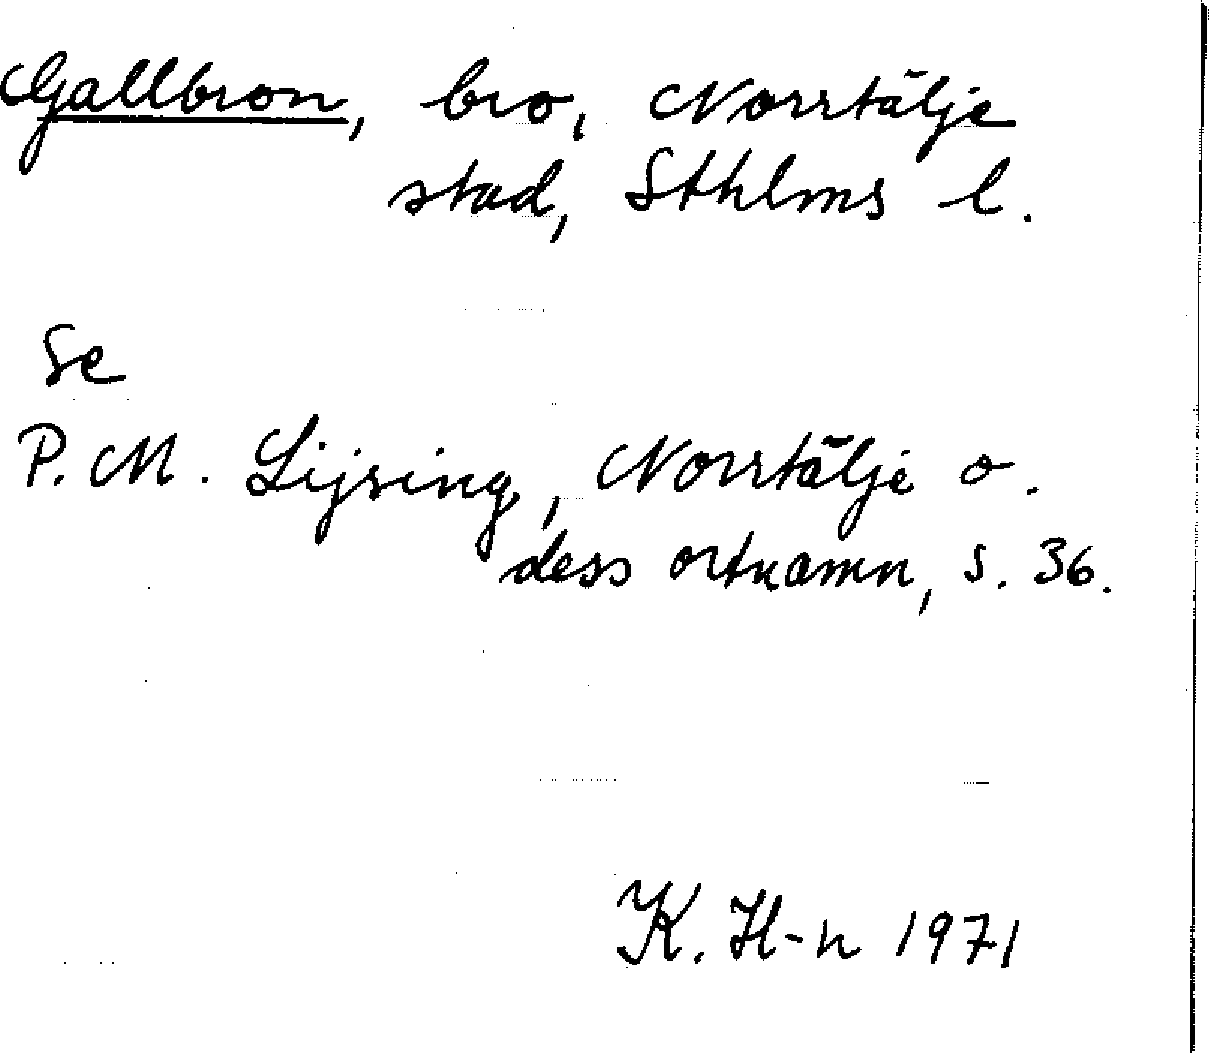 Gallbron, bro, Norrtälje
stad, Sthlms l.
Se
P. M. Lijsing, Norrtälje o.
dess ortnamn, s. 36.
K. H-n 1971